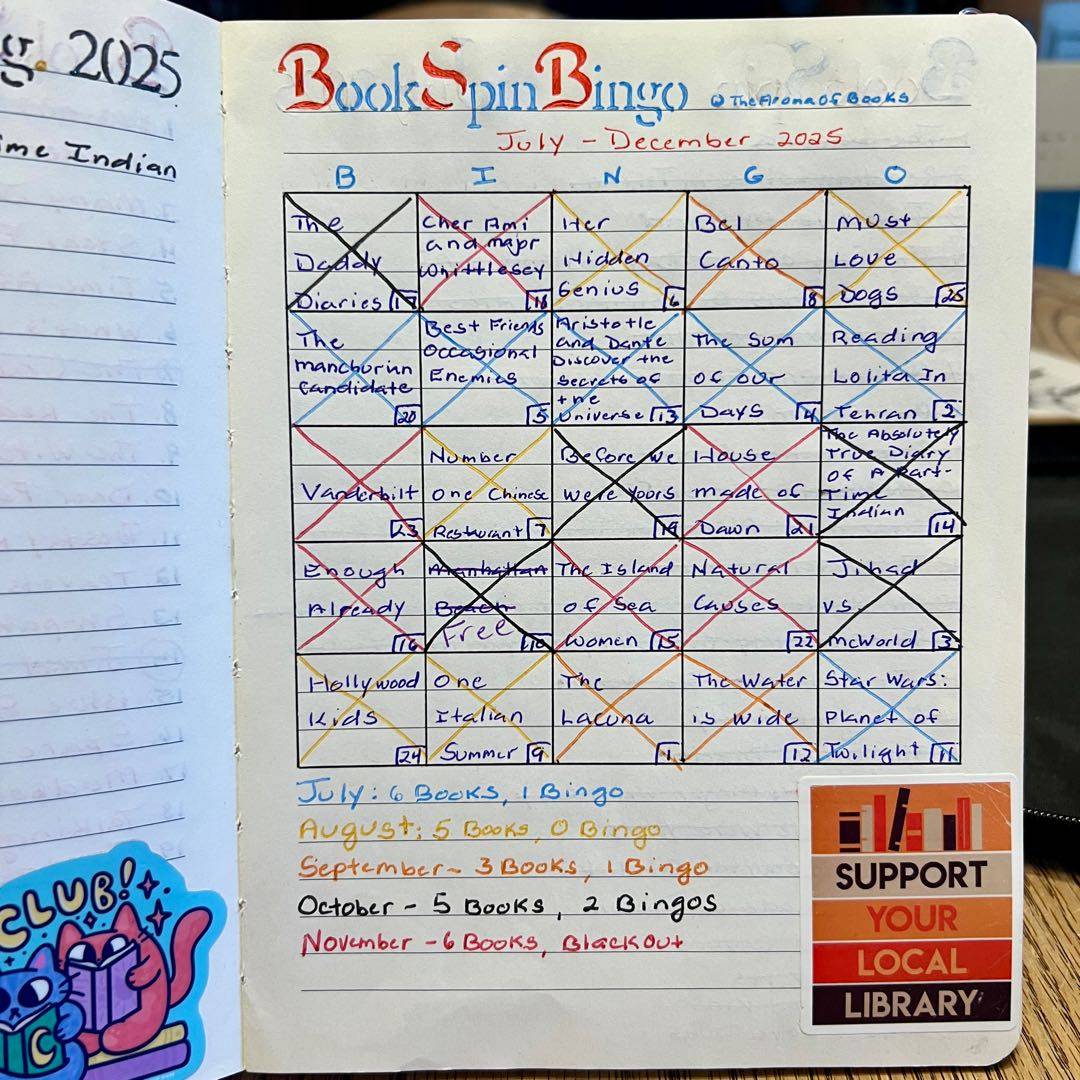 2025
ime Indian
BookSpinBingo @TheAromaOfBooks
July - December 2025
B I N G O
The
Daddy
Diaries 17
Cher Ami
and majpr
Whittlesey
18
Her
Hidden
Genius 6
Bel
Canto
8
Must
Love
Dogs 25
The
manchurian
candidate
20
Best Friends
Occasional
Enemies
5
Aristotle
and Dante
Discover the
Secrets of
the
Universe 13
The Sum
of our
Days 4
Reading
Lolita In
Tehran 2
Vanderbilt
23
Number
one Chinese
Restaurant 7
Before we
were yours
19
House
made of
Dawn 21
The Absolutely
True Diary
of A Part-
Time
Indian
14
Enough
Already
16
Manhattan
Beach
Free 10
The Island
of Sea
Women 15
Natural
Causes
22
Jihad
vs.
McWorld 3
Hollywood
Kids
24
One
Italian
Summer 9
The
Lacuna
1
The Water
is wide
12
Star Wars:
Planet of
Twilight 11
July: 6 Books, 1 Bingo
August: 5 Books, 0 Bingo
September - 3 Books, 1 Bingo
October - 5 Books, 2 Bingos
November - 6 Books, Blackout
CLUB!
SUPPORT
YOUR
LOCAL
LIBRARY